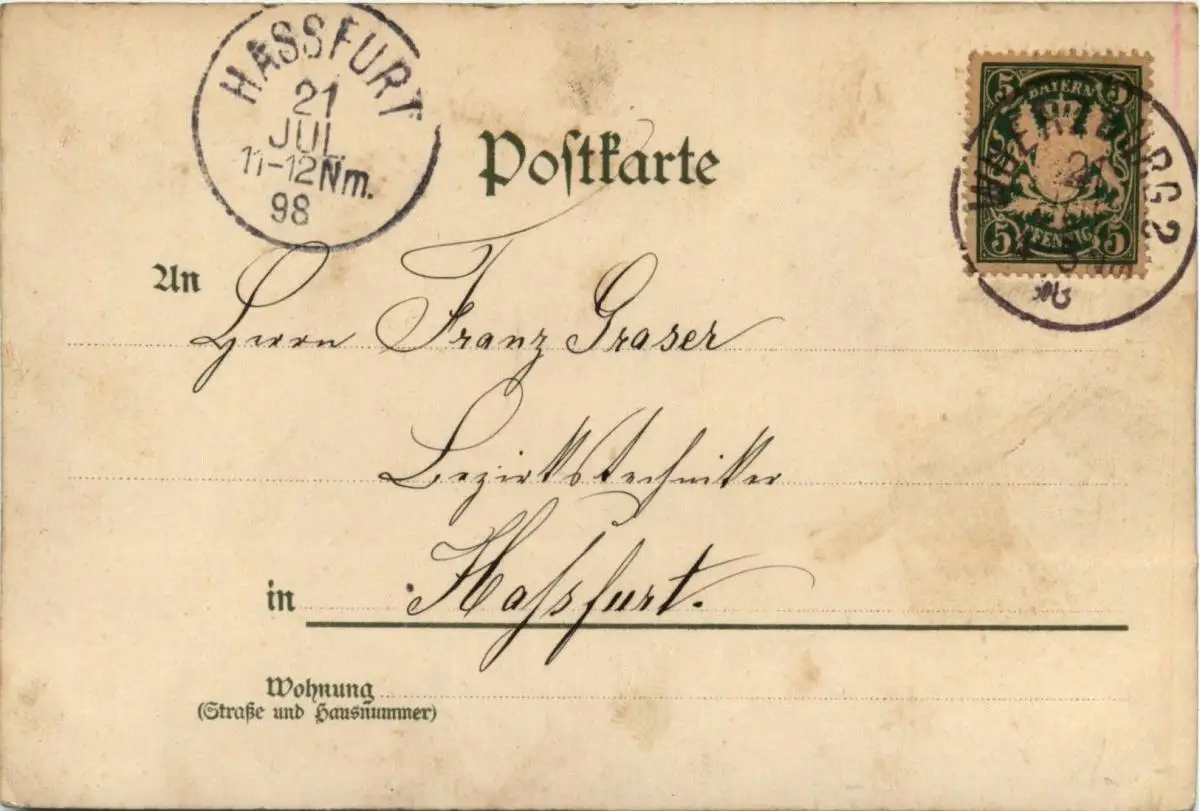 HASSFURT
21
JUL
11-12Nm.
98
Postkarte
5 BAYERN 5
5 PFENNIG 5
WUERZBURG 2
21
An
Herrn Franz Graser
Bezirkstechniker
in Hassfurt.
Wohnung
(Straße und Hausnummer)